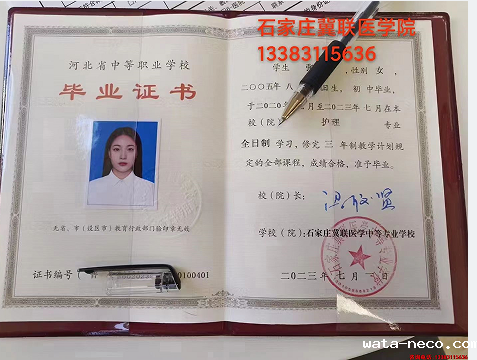 石家庄冀联医学院
13383115636
河北省中等职业学校
毕业证书
无省、市(设区市)教育行政部门验印章无效
证书编号
0100401
学生
性别 女,
二〇〇五年 八
日生,初 中毕业,
于二〇二〇年
月至二〇二三年 七月在本
校(院)
护理
专业
全日制 学习,修完 三 年制教学计划规
定的全部课程,成绩合格,准予毕业。
校(院)长:
学校(院):石家庄冀联医学中等专业学校
二〇二三年 七月
日
wata-neco.com